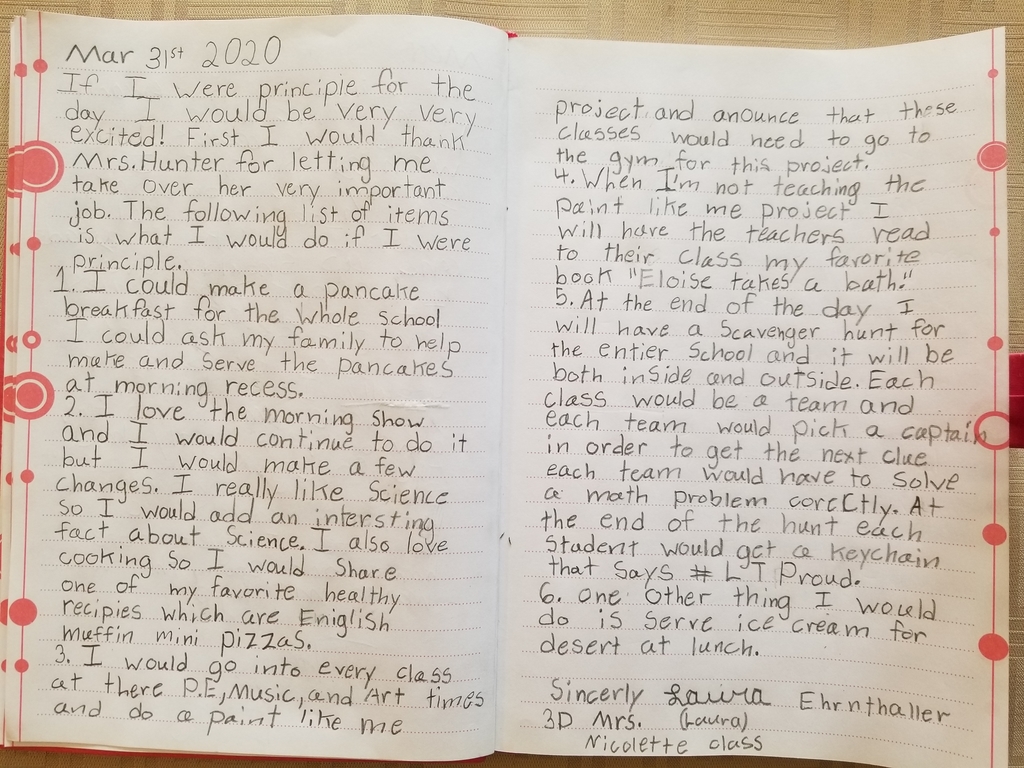 Mar 31st 2020
If I were principle for the
day I would be very very
excited! First I would thank
Mrs. Hunter for letting me
take over her very important
job. The following list of items
is what I would do if I were
principle.
1. I could make a pancake
breakfast for the whole school
I could ask my family to help
make and serve the pancakes
at morning recess.
2. I love the morning show
and I would continue to do it
but I would make a few
changes. I really like Science
so I would add an intersting
fact about Science. I also love
cooking so I would share
one of my favorite healthy
recipies which are Eniglish
muffin mini pizzas.
3. I would go into every class
at there P.E, Music, and Art times
and do a paint like me
project and anounce that these
classes would need to go to
the gym for this project.
4. When I'm not teaching the
paint like me project I
will have the teachers read
to their class my favorite
book "Eloise takes a bath."
5. At the end of the day I
will have a scavenger hunt for
the entier school and it will be
both inside and outside. Each
class would be a team and
each team would pick a captain
in order to get the next clue
each team would have to solve
a math problem corectly. At
the end of the hunt each
student would get a keychain
that says # LT Proud.
6. One other thing I would
do is serve ice cream for
desert at lunch.
Sincerly Laura Ehrnthaller
3D Mrs. (Laura)
Nicolette class